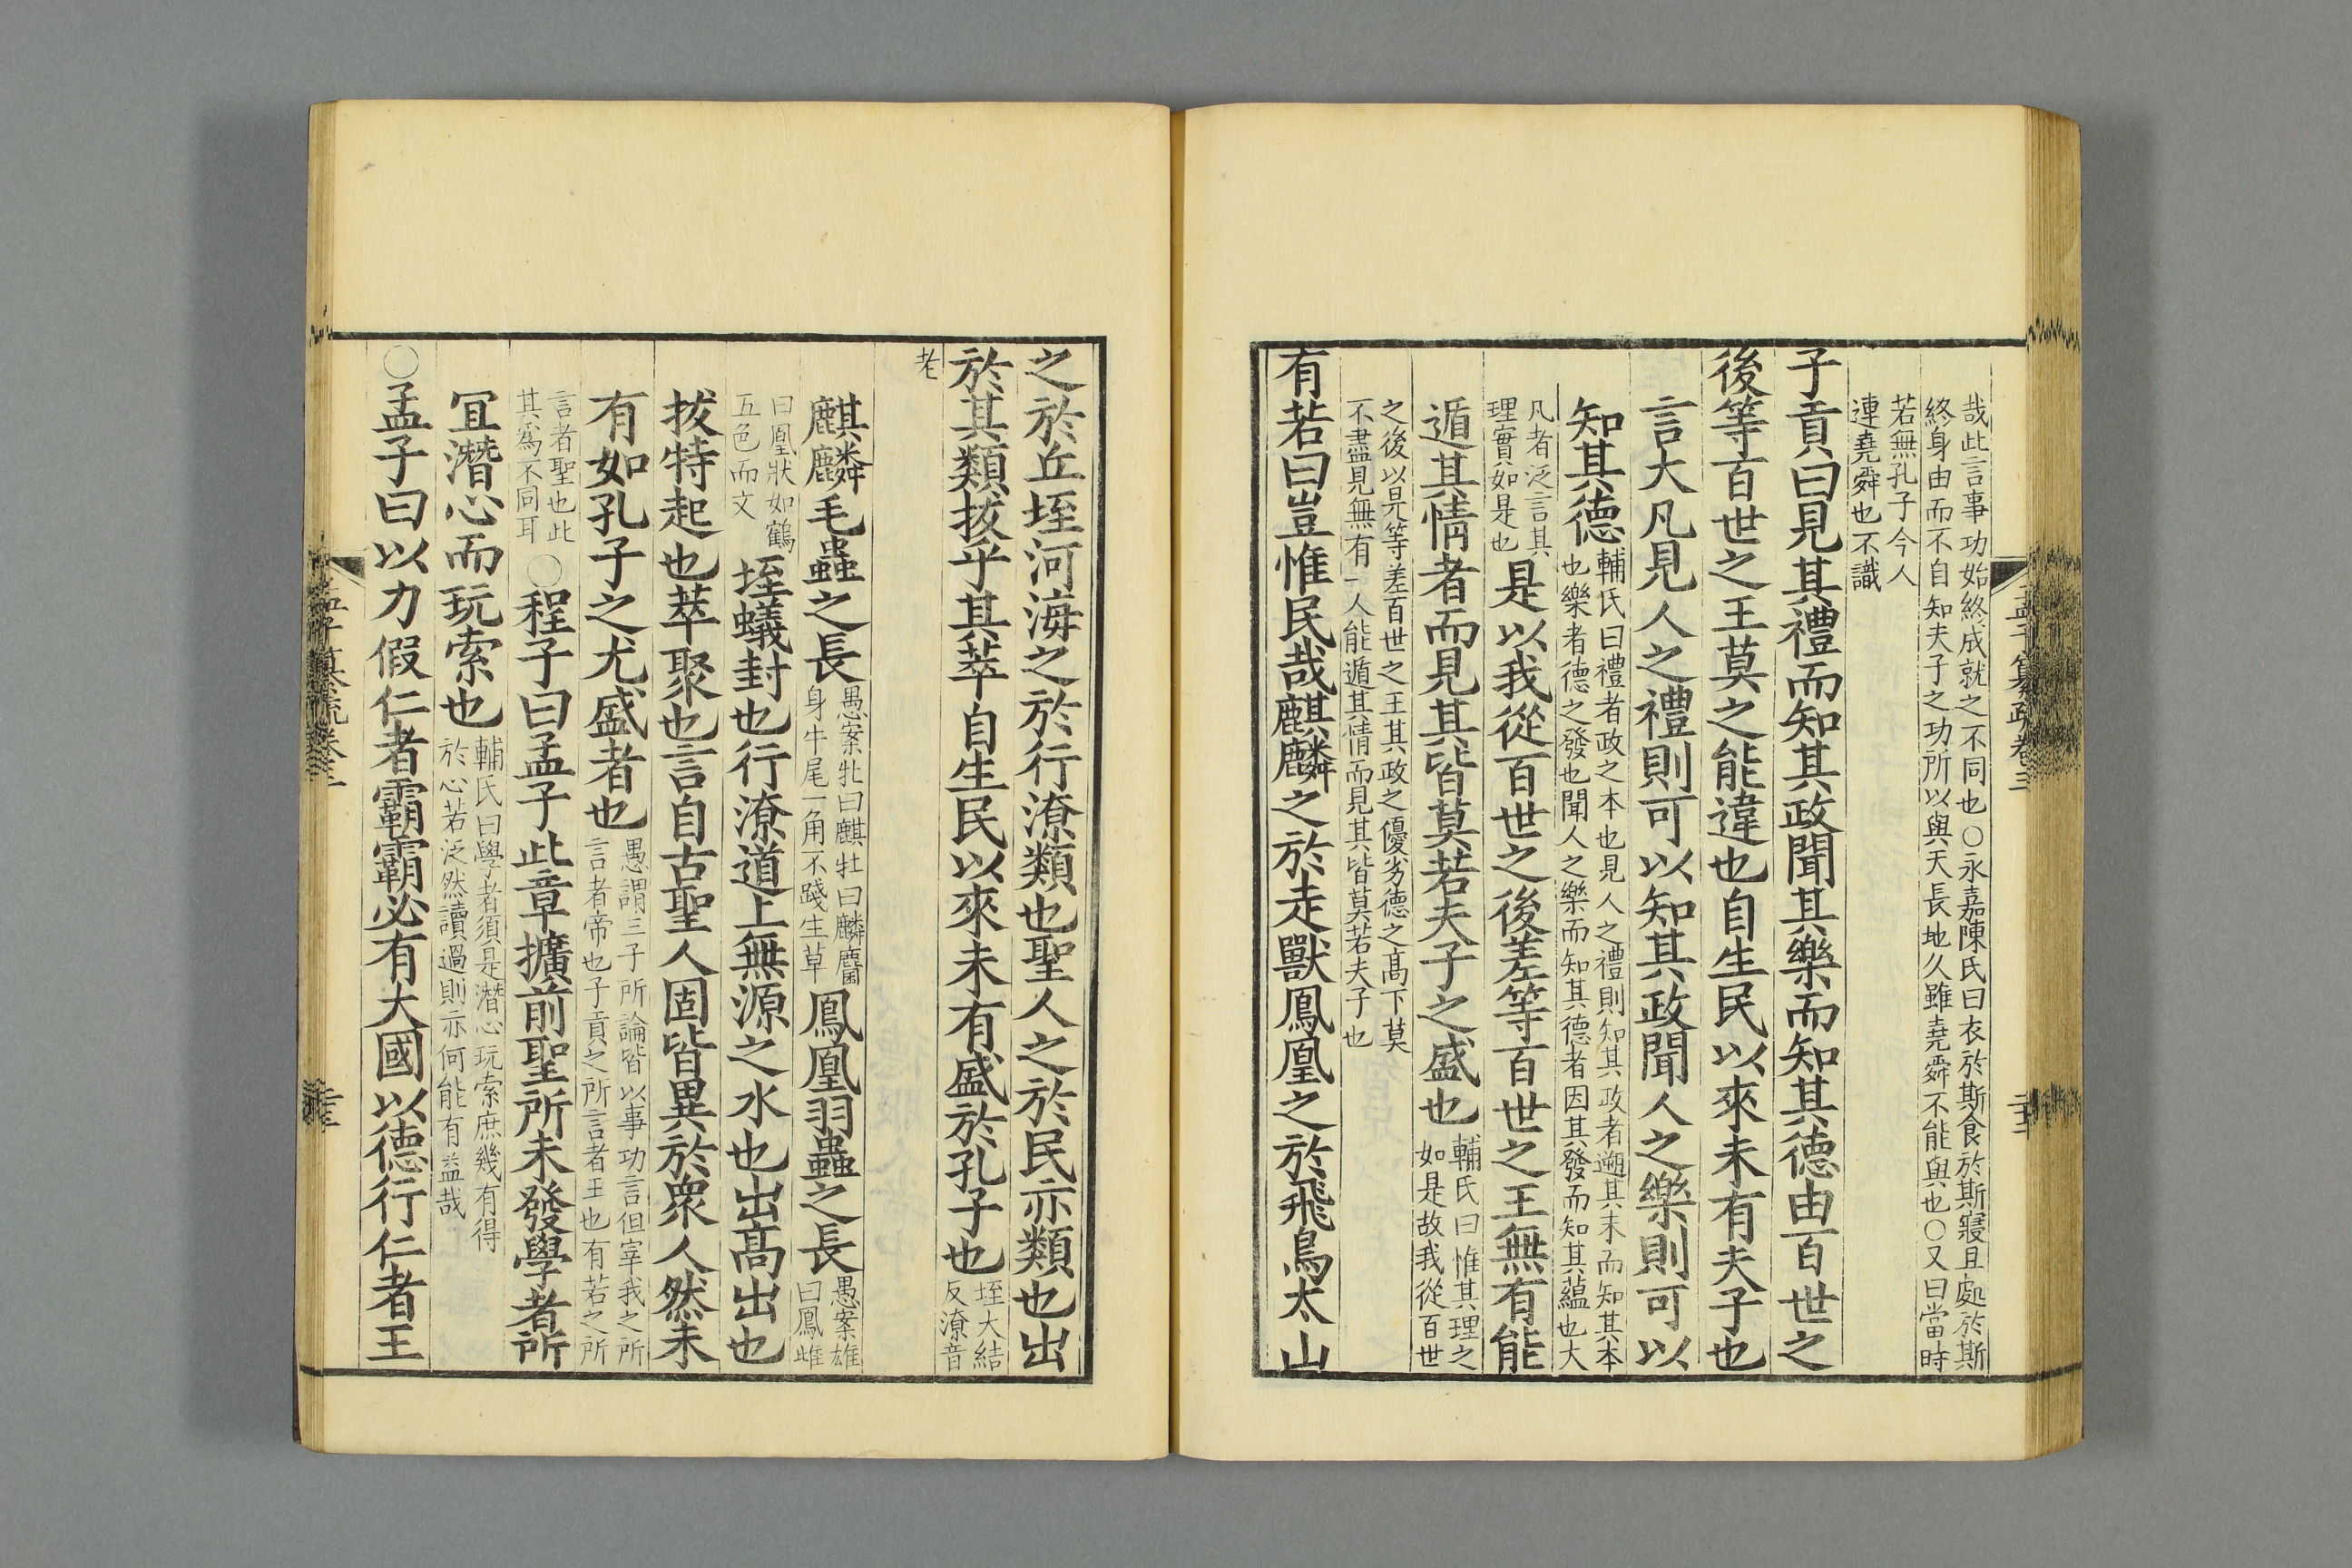 哉此言事功始終成就之不同也○永嘉陳氏曰衣於斯食於斯寢且處於斯
終身由而不自知夫子之功所以與天長地久雖堯舜不能與也○又曰當時
若無孔子今人
連堯舜也不識
子貢曰見其禮而知其政聞其樂而知其德由百世之
後等百世之王莫之能違也自生民以來未有夫子也
言大凡見人之禮則可以知其政聞人之樂則可以
知其德
輔氏曰禮者政之本也見人之禮則知其政者遡其末而知其本
也樂者德之發也聞人之樂而知其德者因其發而知其蘊也大
凡者泛言其
理實如是也
是以我從百世之後差等百世之王無有能
遁其情者而見其皆莫若夫子之盛也
輔氏曰惟其理之
如是故我從百世
之後以是等差百世之王其政之優劣德之髙下莫
不盡見無有一人能遁其情而見其皆莫若夫子也
有若曰豈惟民哉麒麟之於走獸鳳凰之於飛鳥太山
孟子纂疏卷三
之於丘垤河海之於行潦類也聖人之於民亦類也出
於其類拔乎其萃自生民以來未有盛於孔子也
垤大結
反潦音
老
麒麟毛蟲之長
愚案牝曰麒牡曰麟麕
身牛尾一角不踐生草
鳳凰羽蟲之長
愚案雄
曰鳳雌
曰凰狀如鶴
五色而文
垤蟻封也行潦道上無源之水也出髙出也
拔特起也萃聚也言自古聖人固皆異於衆人然未
有如孔子之尤盛者也
愚謂三子所論皆以事功言但宰我之所
言者帝也子貢之所言者王也有若之所
言者聖也此
其爲不同耳
○程子曰孟子此章擴前聖所未發學者所
冝潛心而玩索也
輔氏曰學者須是潛心玩索庶幾有得
於心若泛然讀過則亦何能有益哉
○孟子曰以力假仁者霸霸必有大國以德行仁者王